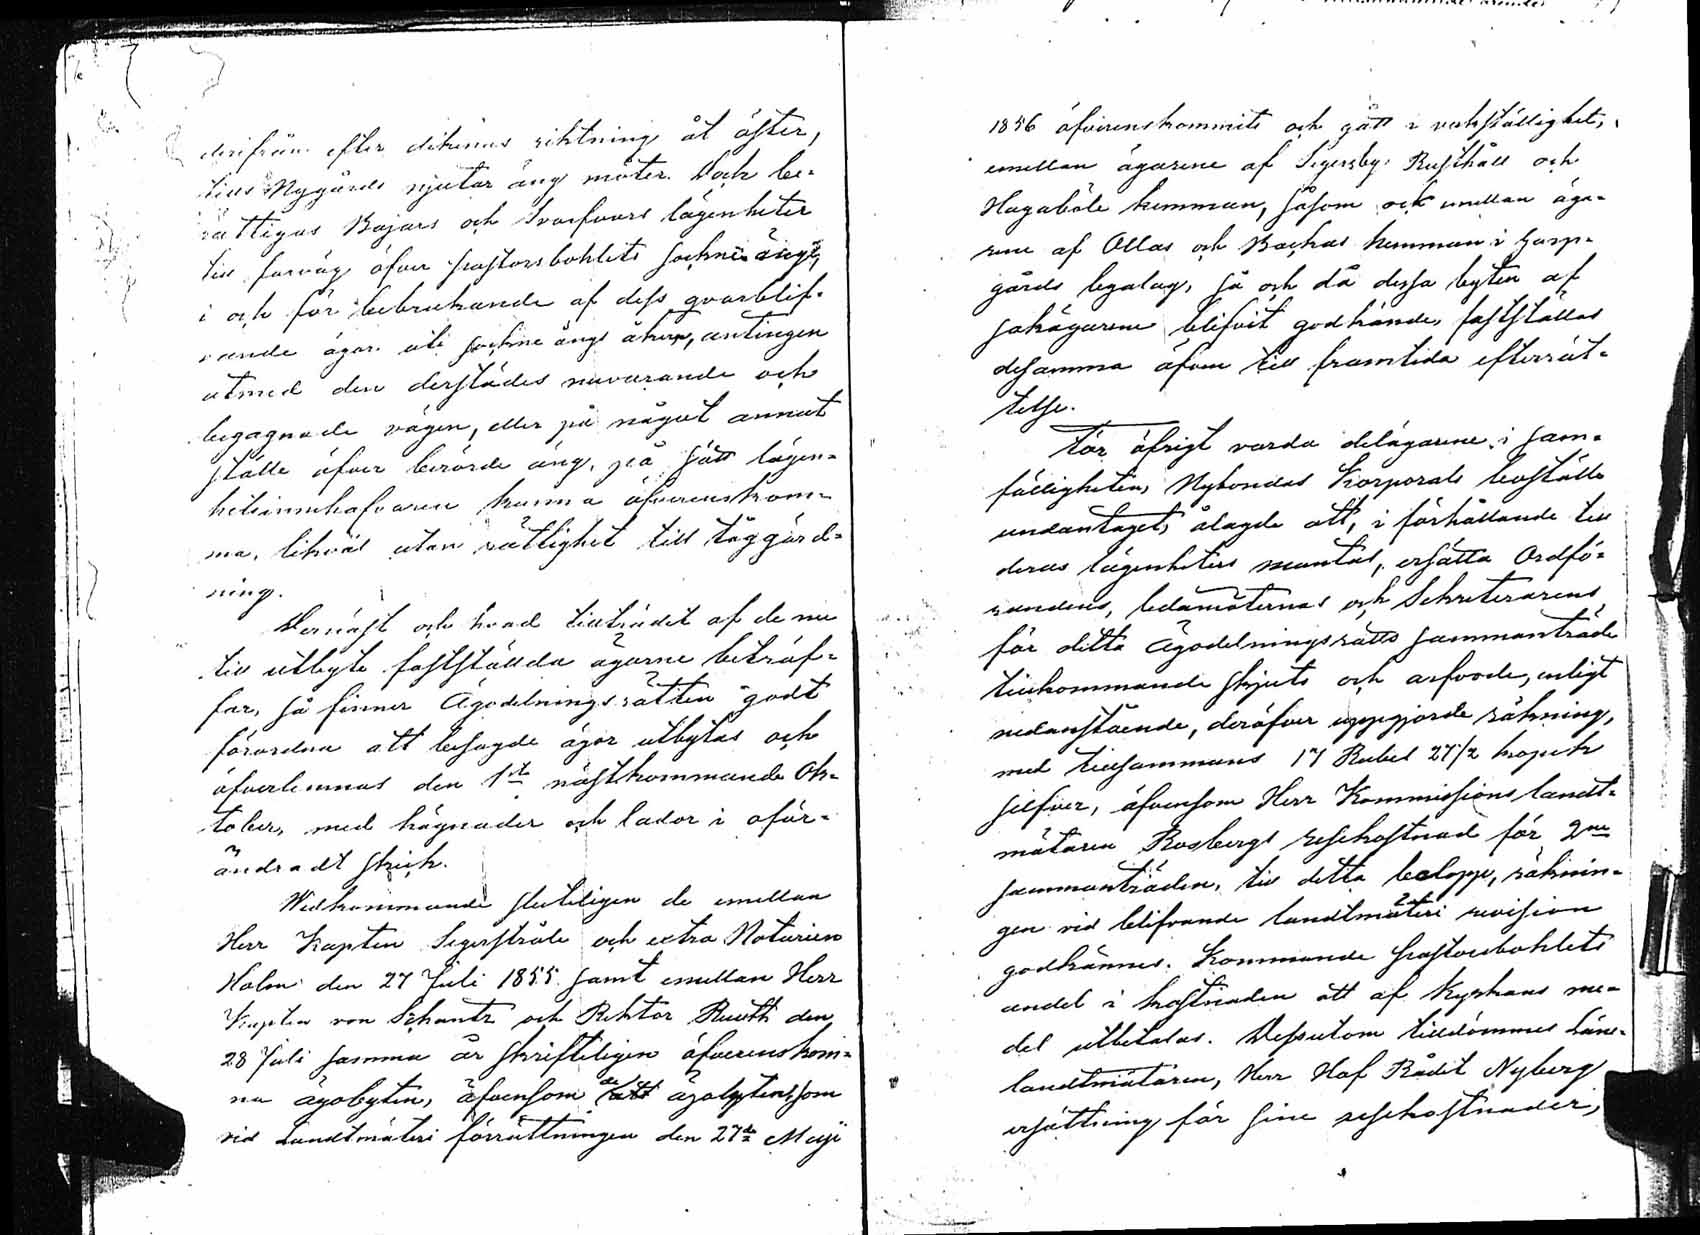 derifrån efter dikenas riktning åt öster,
tills Nygårds njutar äng möter. Dock be-
rättigas Bajars och Svarfvars lägenheter
till farväg öfver prostorsbohlets sockne ängs,
i och för bebrukande af dess qvarblif-
vande ägor uti sockne ängs åkern, antingen
utmed den derstädes nuvarande och
begagnade vägen, eller på något annat
ställe öfver berörde äng, på sätt lägen-
hetsinnehafvaren kunna öfverenskom-
ma, likväl utan rättighet till tåggärd-
ning.
Dernäst och hvad tillträdet af de nu
till utbyte fastställda ägorne beträf-
far, så finner Ägodelningsrätten godt
förordna att besagde ägor utbytas och
öfverlemnas den 1st nästkommande Ok-
tober, med hägnader och lador i oför-
ändradt skick.
Widkommande slutligen de emellan
Herr Kapten Segerstråle och extra Notarien
Holm den 27 Juli 1855 samt emellan Herr
Kapten von Schantz och Rektor Ruuth den
28 Juli samma år skriftligen öfverenskom-
na ägobyten, äfvensom de ägobyten, som
vid Landtmäteri förrättningen den 27de Maji
1856 öfverenskommits och gått i verkställighet,
emellan ägarene af Sigersby Rusthåll och
Hagaböle hemman, såsom ock emellan äga-
rene af Ollas och Backas hemman i Gasp-
gårds byalag, så och då dessa byten af
sakägarene blifvit godkände, fastställas
desamma äfven till framtida efterrät-
telse.
För öfrigt varda delägarene i sam-
fälligheten, Nybondas Korporals boställe
undantaget, ålagde att, i förhållande till
deras lägenheters mantal, ersätta Ordfö-
randens, ledamöternas och Sekreterarens
för detta Ägodelningsrätts sammanträde
tillkommande skjuts och arfvode, enligt
nedanstående, deröfver uppgjorde räkning,
med tillsammans 17 Rubel 27 1/2 kopek
silfver, äfvensom Herr Kommissions landt-
mätaren Rosbergs resekostnad för 2ne
sammanträden, till detta belopp, räknin-
gen vid blifvande landtmäteri revision
godkännes. Kommande prostorsbohlets
andel i kostnaden att af Kyrkans me-
del utbetalas. Dessutom tilldömmes Läns-
landtmätaren, Herr Hof Rådet Nyberg
ersättning för sine resekostnader,